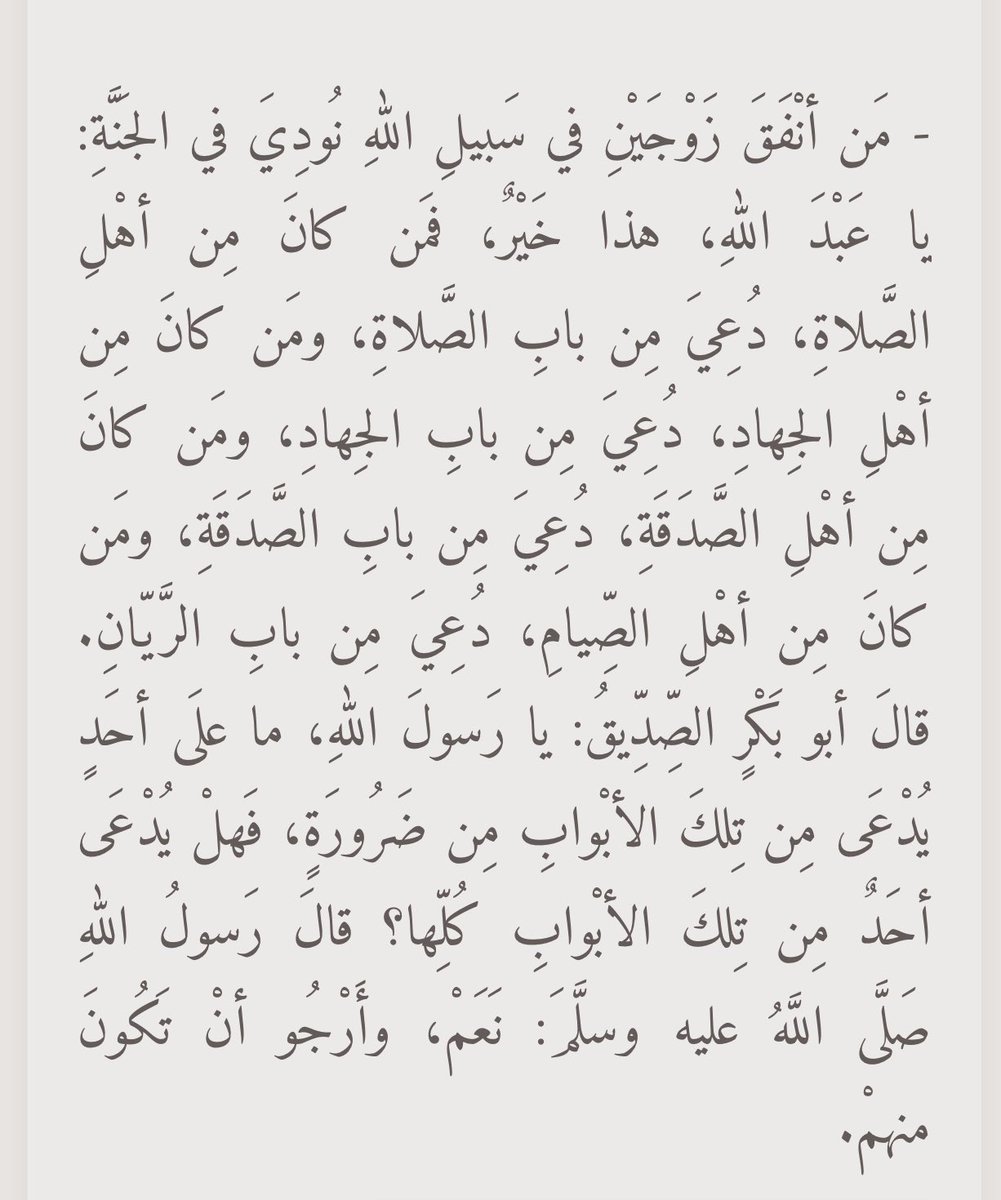 - مَن أنْفَقَ زَوْجَيْنِ في سَبيلِ اللهِ نُودِيَ في الجَنَّةِ:
يا عَبْدَ اللهِ، هذا خَيْرٌ، فمَن كانَ مِن أهْلِ
الصَّلاةِ، دُعِيَ مِن بابِ الصَّلاةِ، ومَن كانَ مِن
أهْلِ الجِهادِ، دُعِيَ مِن بابِ الجِهادِ، ومَن كانَ
مِن أهْلِ الصَّدَقَةِ، دُعِيَ مِن بابِ الصَّدَقَةِ، ومَن
كانَ مِن أهْلِ الصِّيامِ، دُعِيَ مِن بابِ الرَّيّانِ.
قالَ أبو بَكْرٍ الصِّدِّيقُ: يا رَسولَ اللهِ، ما علَى أحَدٍ
يُدْعَى مِن تِلكَ الأبْوابِ مِن ضَرُورَةٍ، فَهلْ يُدْعَى
أحَدٌ مِن تِلكَ الأبْوابِ كُلِّها؟ قالَ رَسولُ اللهِ
صَلَّى اللَّهُ عليه وسلَّمَ: نَعَمْ، وأَرْجُو أنْ تَكُونَ
منهمْ.